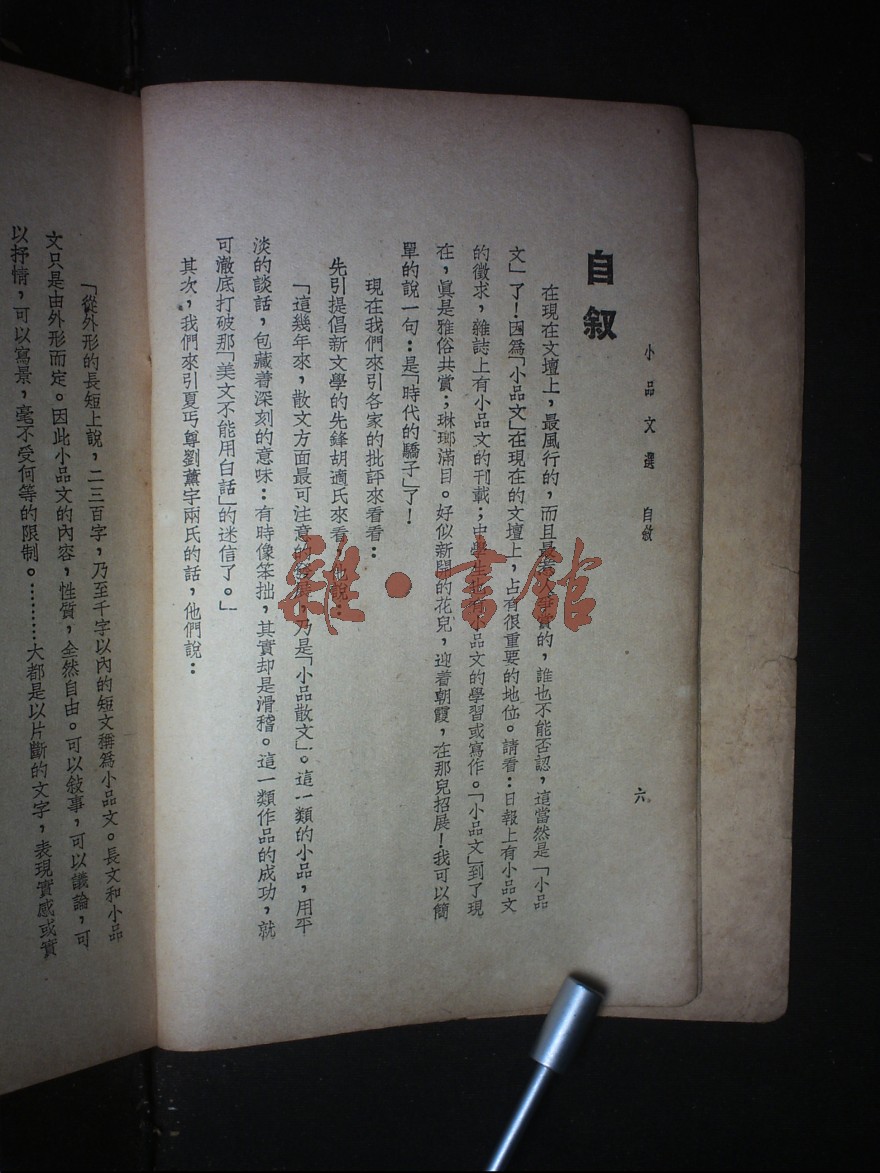 小品文選　自敘
六
自叙
在現在文壇上，最風行的，而且最惹人爭賞的，誰也不能否認，這當然是「小品
文」了！因爲「小品文」在現在的文壇上，占有很重要的地位。請看：日報上有小品文
的徵求，雜誌上有小品文的刊載；中學生也有小品文的學習或寫作。「小品文」到了現
在，眞是雅俗共賞；琳瑯滿目。好似新開的花兒，迎着朝霞，在那兒招展！我可以簡
單的說一句：是「時代的驕子」了！
現在我們來引各家的批評來看看：
先引提倡新文學的先鋒胡適氏來看，他說：
「這幾年來，散文方面最可注意的發展，乃是「小品散文」。這一類的小品，用平
淡的談話，包藏着深刻的意味：有時像笨拙，其實却是滑稽。這一類作品的成功，就
可澈底打破那「美文不能用白話」的迷信了。」
其次，我們來引夏丏尊劉薰宇兩氏的話，他們說：
「從外形的長短上說，二三百字，乃至千字以內的短文稱爲小品文。長文和小品
文只是由外形而定。因此小品文的內容，性質，全然自由。可以敍事，可以議論，可
以抒情，可以寫景，毫不受何等的限制。………大都是以片斷的文字，表現實感或實
雜·書館